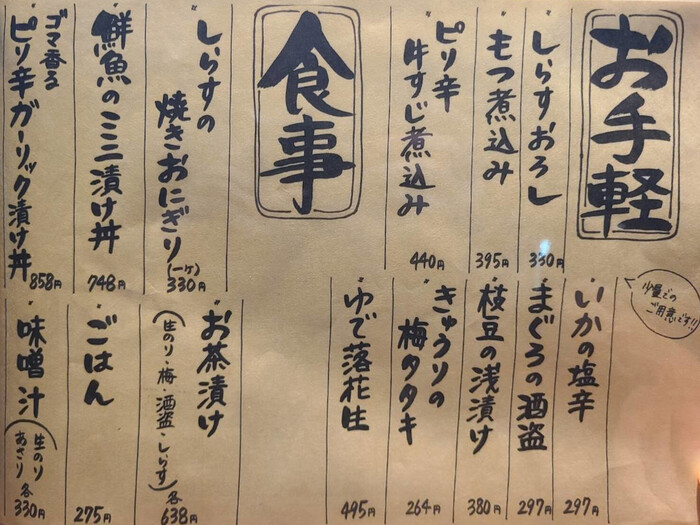 お手軽
少量での
ご用意です!!
しらすおろし
330円
もつ煮込み
395円
ピリ辛
牛すじ煮込み
440円
いかの塩辛
297円
まぐろの酒盗
297円
枝豆の浅漬け
380円
きゅうりの
梅タタキ
264円
ゆで落花生
495円
食事
しらすの
焼きおにぎり
(一ケ)
330円
鮮魚のミニ漬け丼
748円
ゴマ香る
ピリ辛ガーリック漬け丼
858円
お茶漬け
(生のり・梅・酒盗・しらす)
各
638円
ごはん
275円
味噌汁
(生のり
あさり)
各
330円